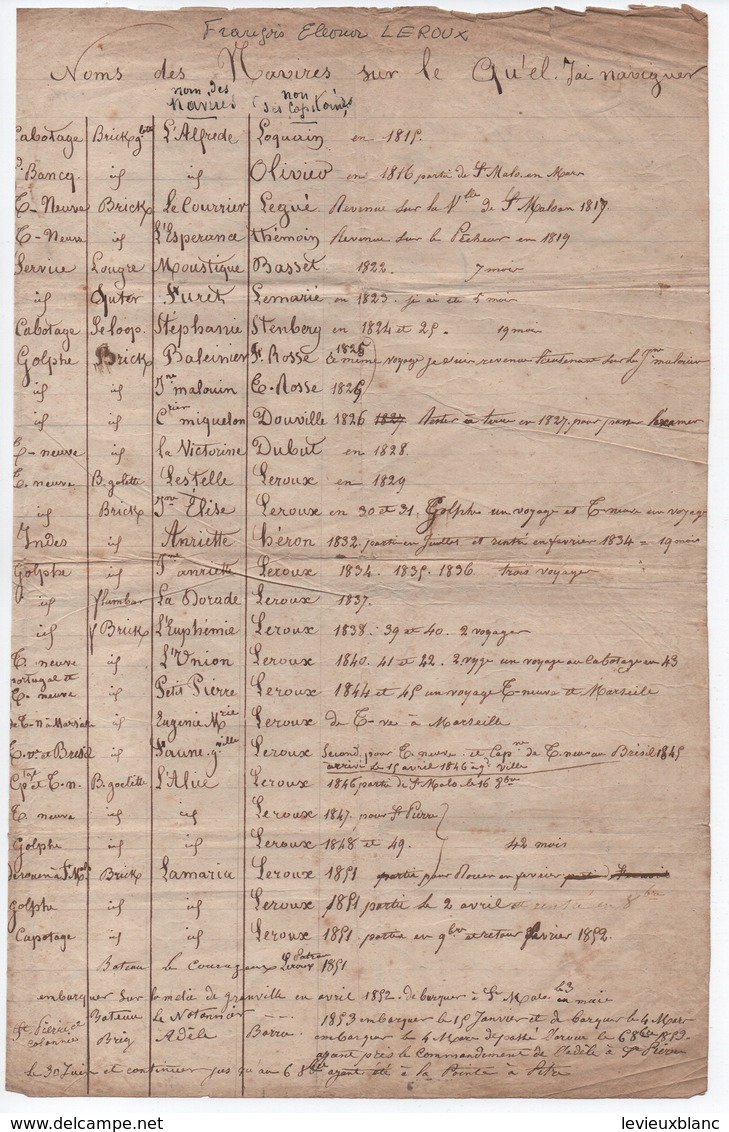 François Eleonor LEROUX
Noms des Navires sur le Qu'el. J'ai naviguer
nom des Navires
non des Capitaines
Cabotage Brick gtte L'Alfrede Loquain en 1815.
Bancq. id id Olivier en 1816 partie de St Malo en Mars
T-Neuve Brick Le Courrier Legué. Revenue sur la Vtte de St Malo en 1817.
T-Neuve id L'Esperance thémoin Revenue sur le Pêcheur en 1819
Service Lougre Moustique Basset 1822. 7 mois
id Cutor Furet Lemarié en 1823. j'ai été 5 mois
Cabotage Seloop. Stéphanie Stenberg en 1824 et 25. 19 mois
Golphe Brick Baleinier F. Rosse 1825 Le même voyage je suis revenue lieutenant sur le Jne malouin
id id Jne malouin E. Rosse 1826
id id Crier miquelon Douville 1826 1827 Rester à terre en 1827. pour passer l'examen
T-neuve id La Victorine Dubut en 1828.
T. neuve B. golette Lestelle Leroux en 1829
id Brick Jne Élise Leroux en 30 et 31. Golphe un voyage et T-neuve un voyage
Indes id Anriette théron 1832. partie en Juillet et rentré en fevrier 1834 = 19 mois
Golphe id Jne anriette Leroux 1834. 1835. 1836. trois voyages
id flambar La Dorade Leroux 1837.
id Brick L'Euphémie Leroux 1838. 39 et 40. 2 voyages
T. neuve id L'Union Leroux 1840. 41 et 22. 2 vyge un voyage au Cabotage en 43
portugal et T. neuve id Petit Pierre Leroux 1844 et 45 un voyage T-neuve et Marseille
de T-n à Marseille id Eugenie Mrie Leroux de T-ve à Marseille
T. ve et Bresil id Jeaune gville Leroux Second pour T. neuve et Capne de T. neu au Brésil 1845
arrivé le 15 avril 1846 à gd ville
Gphe et T. n. B. goelette L'Alie Leroux 1846 partie de St Malo le 16 8bre
T. neuve id id Leroux 1847. pour St Pierre
Golphe id id Leroux 1848 et 49. 42 mois
de rouen à St Malo Brick Lamaria Leroux 1851 partie pour Rouen en fevrier
golphe id id Leroux 1851 partie le 2 avril et rentré en 8bre
Capotage id id Leroux 1851 partie en 9bre et retour fevrier 1852.
Bateau le Courageux Leroux 1851
embarquer sur la metie de granville en avril 1852. debarquer à St Malo le 3 en mai
Bateau le Notonnier 1853 embarquer le 15 janvier et de barquer le 4 Mars
St Pierre et colonnies Brig Adèle Barre embarquer le 4 Mars depassé
ayant près le Commandement de l'adèle à St Pierre
le 30 Juin et continuer jus qu au 6 8bre ayant été à la Pointe à Pitre
levieuxblanc
delcampe.net